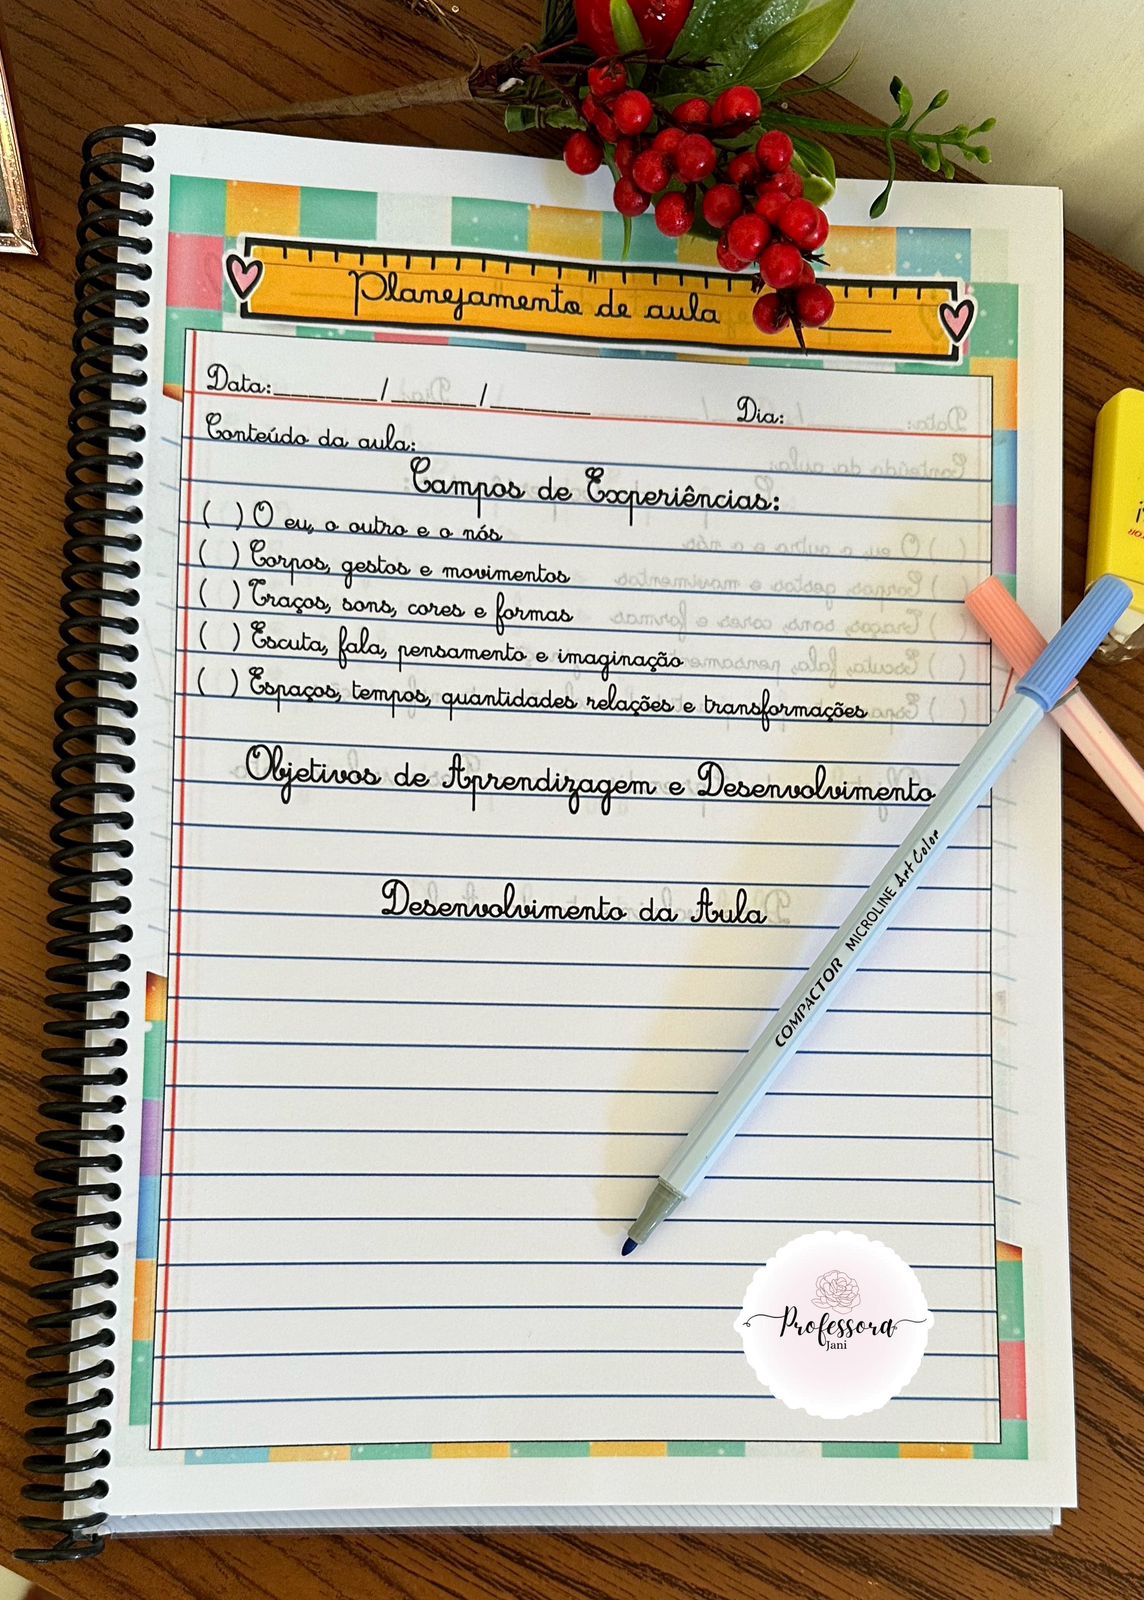 Planejamento de aula
Data:______/_____/______ Dia:
Conteúdo da aula:
Campos de Experiências:
( ) O eu, o outro e o nós
( ) Corpos, gestos e movimentos
( ) Traços, sons, cores e formas
( ) Escuta, fala, pensamento e imaginação
( ) Espaços, tempos, quantidades relações e transformações
Objetivos de Aprendizagem e Desenvolvimento
Desenvolvimento da Aula
COMPACTOR MICROLINE Art Color
Professora
Jani